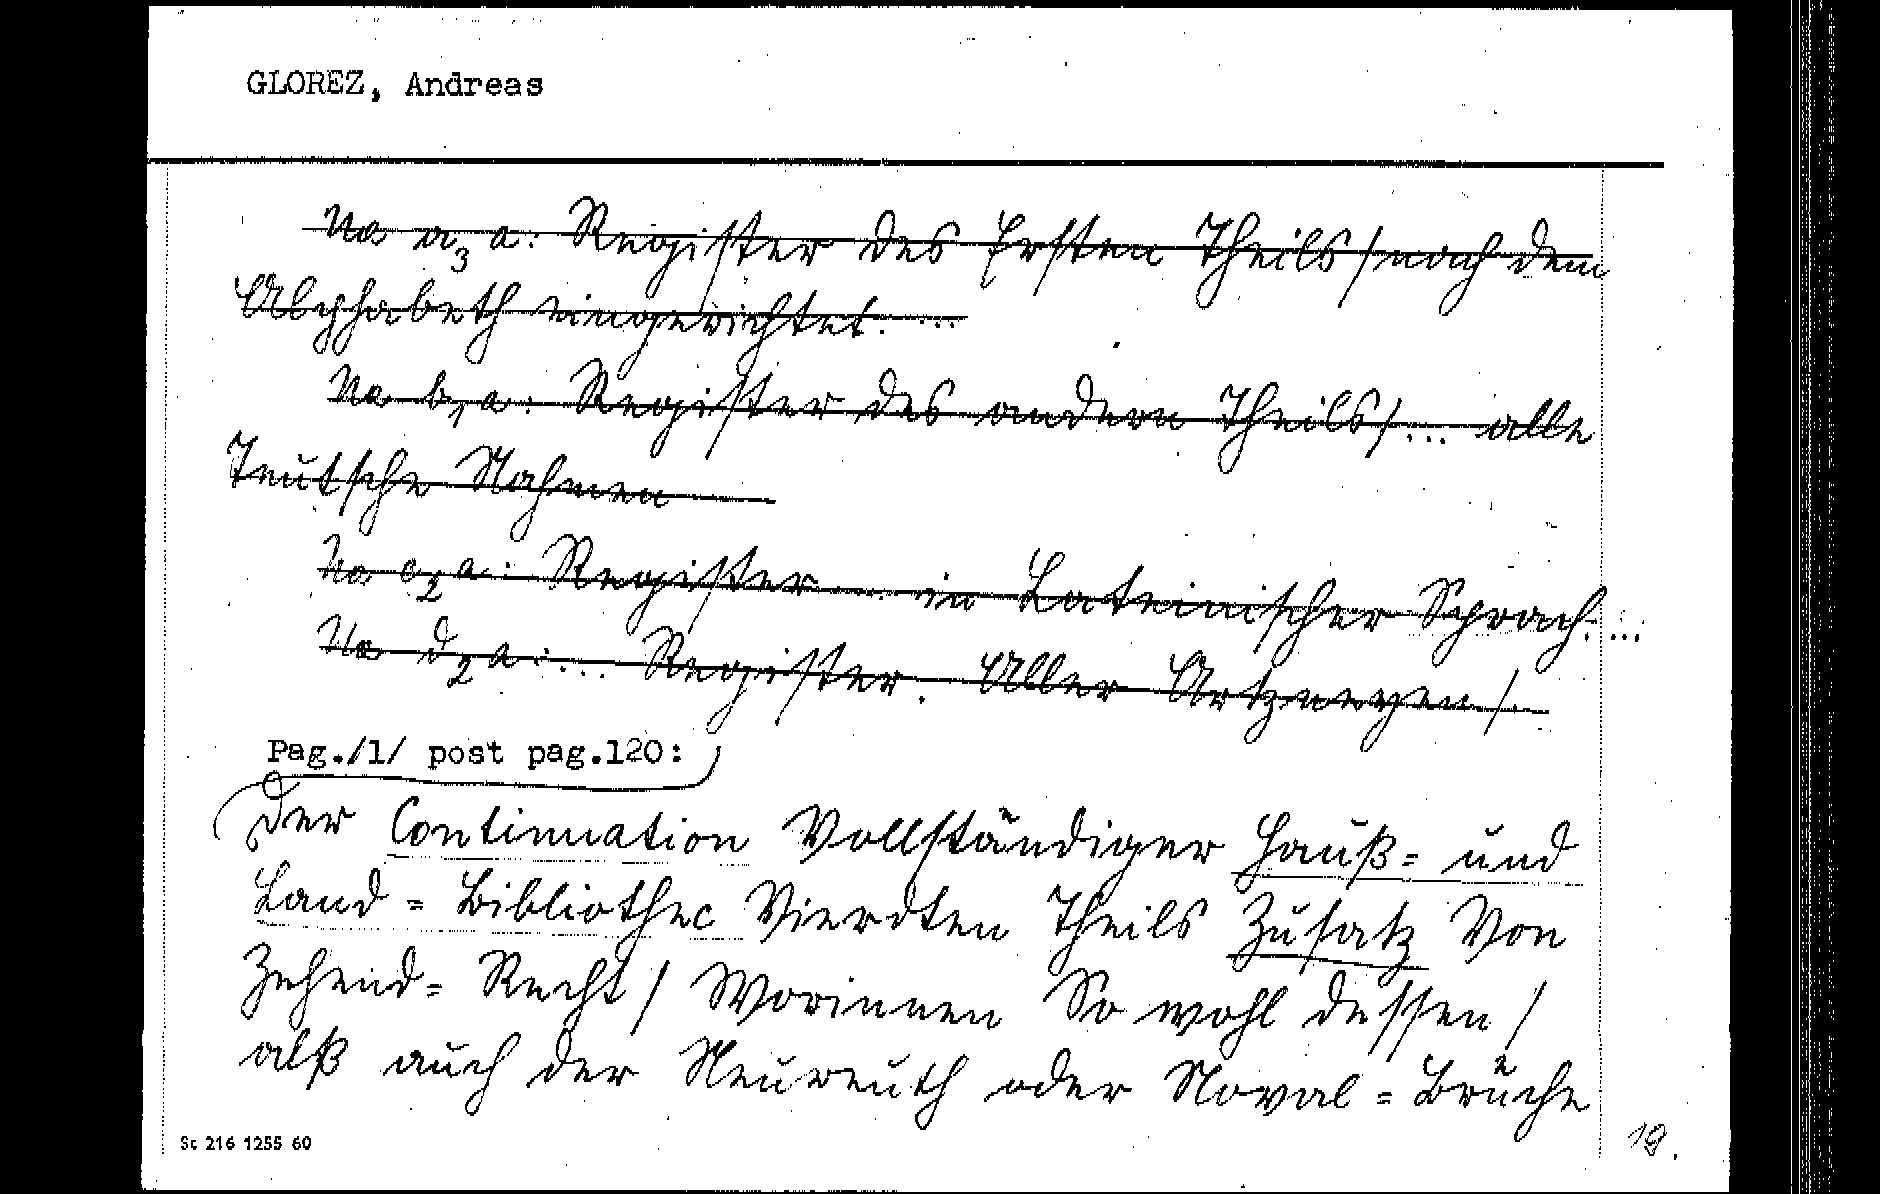 GLOREZ, Andreas
Na a3 a: Register des Ersten Theils / nach dem
Alphabeth eingerichtet. ...
Na b, a: Register des andern Theils / ... alle
Teutsche Nahmen
Na c2 a: Register ... in Lateinischer Sprach. ...
Na d2 a: ... Register. Aller Artzneyen /.
Pag./1/ post pag.120:
Der Continuation Vollständiger Hauß= und
Land=Bibliothec Vierdten Theils Zusatz Von
Zehend=Recht / Worinnen So wohl dessen /
alß auch der Neureuth oder Noval=Brüche
Sc 216 1255 60
19.